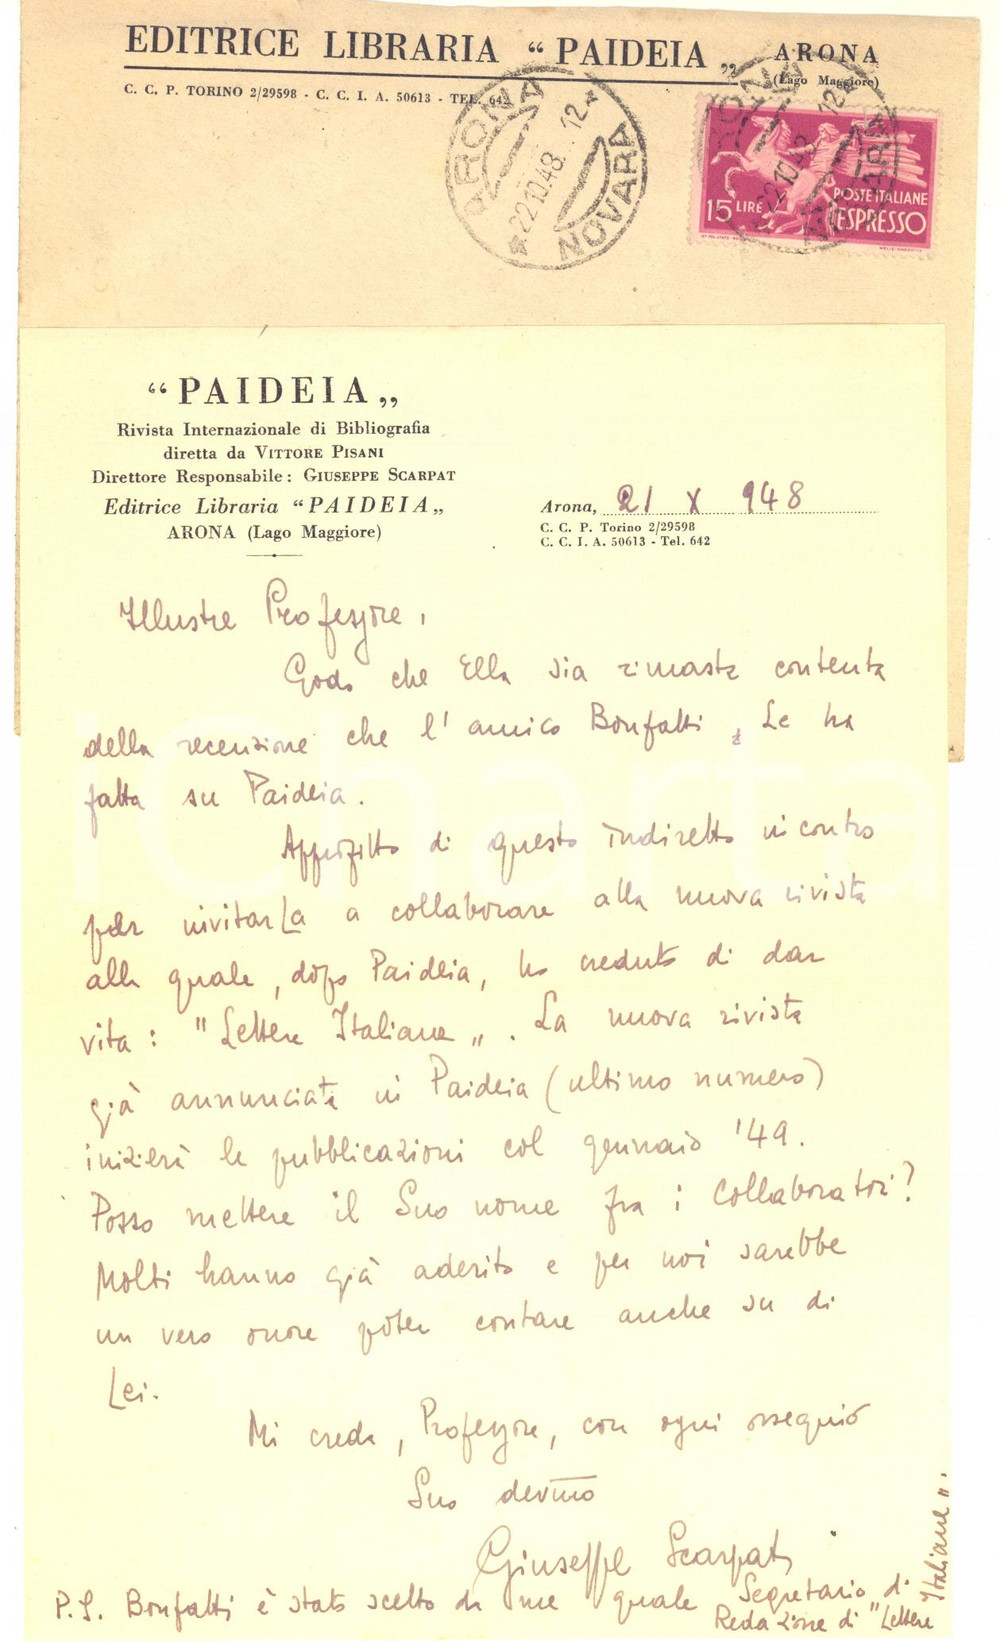 EDITRICE LIBRARIA “ PAIDEIA „ ARONA
(Lago Maggiore)
C. C. P. TORINO 2/29598 - C. C. I. A. 50613 - TEL. 642
ARONA
22.10.48. 12
NOVARA
22.10.48 12
15 LIRE
POSTE ITALIANE
ESPRESSO
“ PAIDEIA „
Rivista Internazionale di Bibliografia
diretta da VITTORE PISANI
Direttore Responsabile: GIUSEPPE SCARPAT
Editrice Libraria “PAIDEIA„
ARONA (Lago Maggiore)
Arona, 21 X 948
C. C. P. Torino 2/29598
C. C. I. A. 50613 - Tel. 642
Illustre Professore,
Godo che Ella sia rimasta contenta
della recensione che l'amico Bonfatti, Le ha
fatta su Paideia.
Approfitto di questo indiretto incontro
per invitarLa a collaborare alla nuova rivista
alla quale, dopo Paideia, ho creduto di dar
vita: "Lettere Italiane„. La nuova rivista
già annunciata in Paideia (ultimo numero)
inizierà le pubblicazioni col gennaio '49.
Posso mettere il Suo nome fra i Collaboratori?
Molti hanno già aderito e per noi sarebbe
un vero onore poter contare anche su di
Lei.
Mi creda, Professore, con ogni ossequio
Suo dev.mo
Giuseppe Scarpat
P.S. Bonfatti è stato scelto da me quale Segretario di
Redazione di "Lettere
Italiane".
iCharta